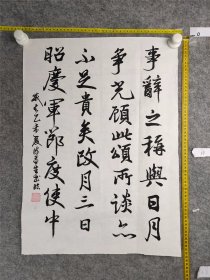 事辭之稱與日月
争光顧此頌所談亦
不足貴矣改月三日
昭慶軍節度使中